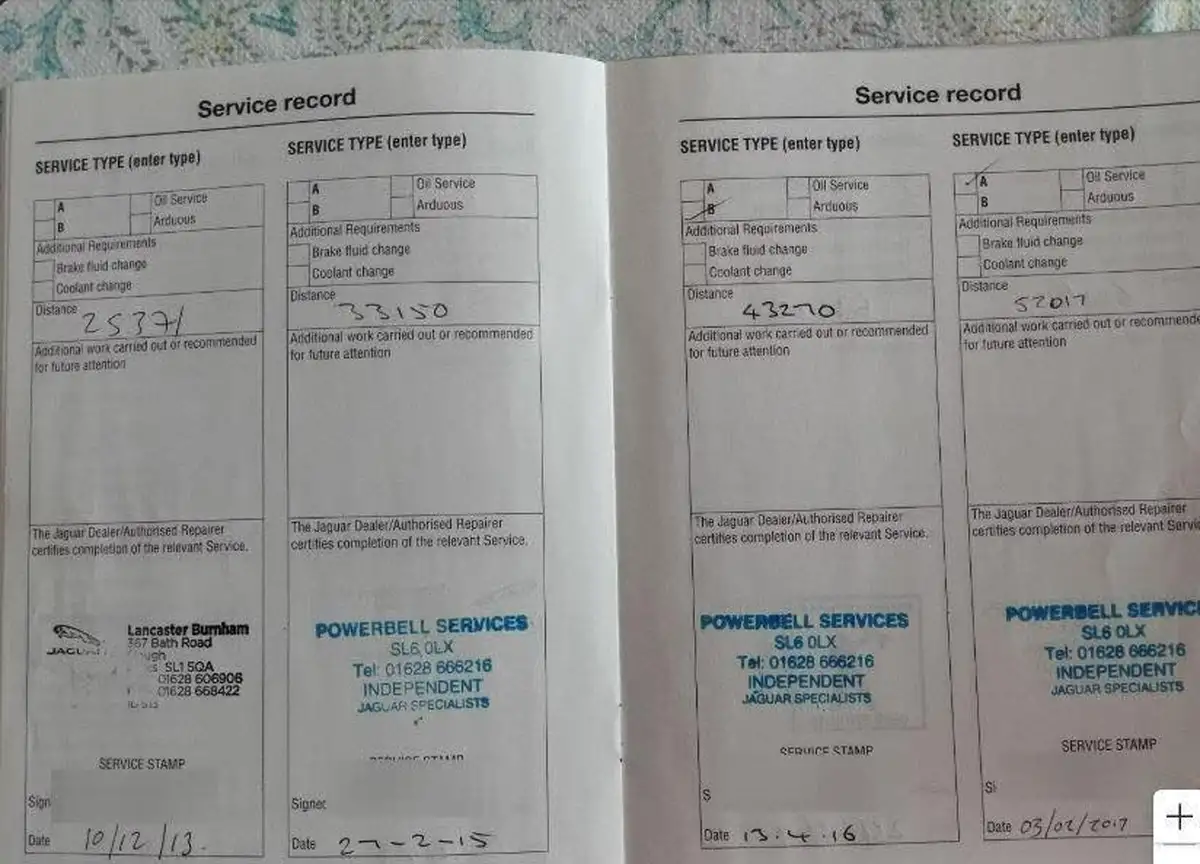 Service record
SERVICE TYPE (enter type)
A
Oil Service
B
Arduous
Additional Requirements
Brake fluid change
Coolant change
Distance 25371
Additional work carried out or recommended
for future attention
The Jaguar Dealer/Authorised Repairer
certifies completion of the relevant Service.
JAGUAR
Lancaster Burnham
367 Bath Road
SL1 5QA
01628 606906
01628 668422
SERVICE STAMP
Sign
Date 10/12/13.
SERVICE TYPE (enter type)
A
Oil Service
B
Arduous
Additional Requirements
Brake fluid change
Coolant change
Distance 33150
Additional work carried out or recommended
for future attention
The Jaguar Dealer/Authorised Repairer
certifies completion of the relevant Service.
POWERBELL SERVICES
SL6 0LX
Tel: 01628 666216
INDEPENDENT
JAGUAR SPECIALISTS
Signed
Date 27-2-15
Service record
SERVICE TYPE (enter type)
A
Oil Service
B
Arduous
Additional Requirements
Brake fluid change
Coolant change
Distance 43270
Additional work carried out or recommended
for future attention
The Jaguar Dealer/Authorised Repairer
certifies completion of the relevant Service.
POWERBELL SERVICES
SL6 0LX
Tel: 01628 666216
INDEPENDENT
JAGUAR SPECIALISTS
SERVICE STAMP
S
Date 13.4.16
SERVICE TYPE (enter type)
A
Oil Service
B
Arduous
Additional Requirements
Brake fluid change
Coolant change
Distance 52017
Additional work carried out or recommende
for future attention
The Jaguar Dealer/Authorised Repairer
certifies completion of the relevant Servic
POWERBELL SERVIC
SL6 0LX
Tel: 01628 666216
INDEPENDENT
JAGUAR SPECIALISTS
SERVICE STAMP
Si
Date 03/02/2017